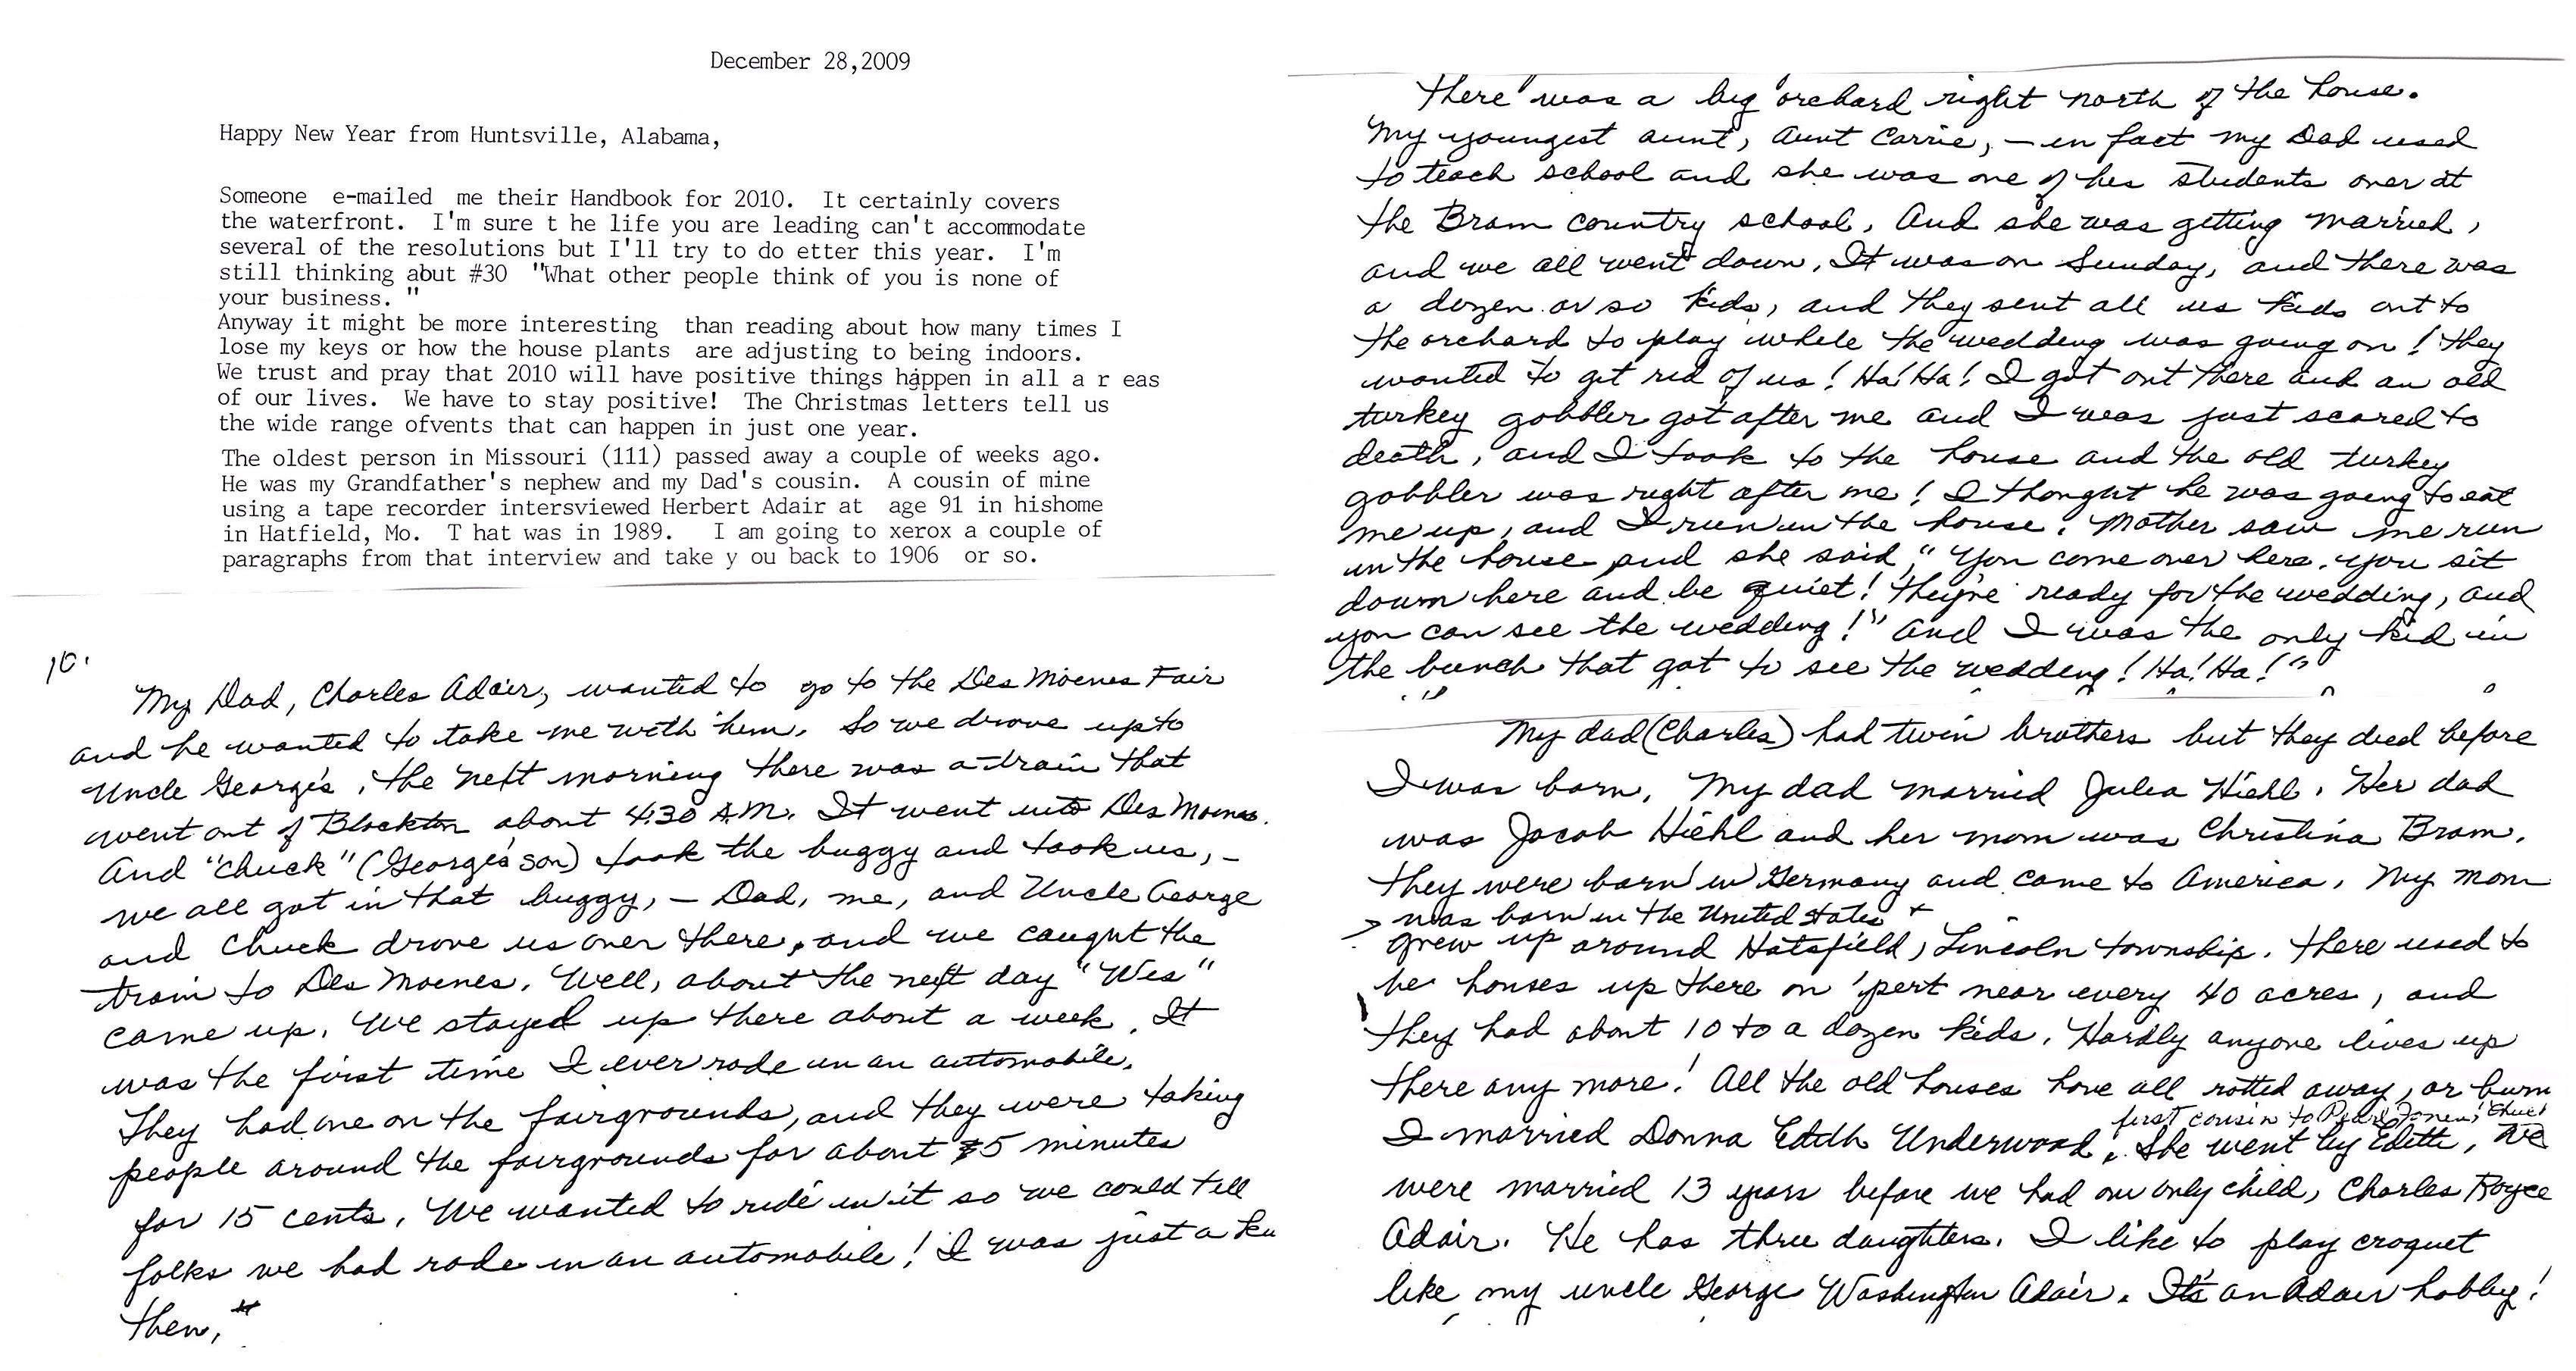 December 28,2009
Happy New Year from Huntsville, Alabama,
Someone e-mailed me their Handbook for 2010. It certainly covers
the waterfront. I'm sure t he life you are leading can't accommodate
several of the resolutions but I'll try to do etter this year. I'm
still thinking abut #30 "What other people think of you is none of
your business. "
Anyway it might be more interesting than reading about how many times I
lose my keys or how the house plants are adjusting to being indoors.
We trust and pray that 2010 will have positive things happen in all a r eas
of our lives. We have to stay positive! The Christmas letters tell us
the wide range ofvents that can happen in just one year.
The oldest person in Missouri (111) passed away a couple of weeks ago.
He was my Grandfather's nephew and my Dad's cousin. A cousin of mine
using a tape recorder intersviewed Herbert Adair at age 91 in hishome
in Hatfield, Mo. T hat was in 1989. I am going to xerox a couple of
paragraphs from that interview and take y ou back to 1906 or so.
10.
My Dad, Charles Adair, wanted to go to the Des Moines Fair
and he wanted to take me with him. So we drove up to
Uncle George's, the next morning there was a train that
went out of Blockton about 4:30 A.M. It went into Des Moines.
And "Chuck" (George's son) took the buggy and took us, -
we all got in that buggy, - Dad, me, and Uncle George
and Chuck drove us over there, and we caught the
train to Des Moines. Well, about the next day "Wes"
came up. We stayed up there about a week. It
was the first time I ever rode in an automobile.
They had one on the fairgrounds, and they were taking
people around the fairgrounds for about 5 minutes
for 15 cents. We wanted to ride in it so we could tell
folks we had rode in an automobile! I was just a
then,"
There was a big orchard right north of the house.
My youngest aunt, Aunt Carrie, - in fact my Dad used
to teach school and she was one of his students over at
the Bram country school. And she was getting married,
and we all went down. It was on Sunday, and there was
a dozen or so kids, and they sent all us kids out to
the orchard to play while the wedding was going on! They
wanted to get rid of us! Ha! Ha! I got out there and an old
turkey gobbler got after me and I was just scared to
death, and I took to the house and the old turkey
gobbler was right after me! I thought he was going to eat
me up, and I run in the house. Mother saw me run
in the house and she said, "You come over here. You sit
down here and be quiet! They're ready for the wedding, and
you can see the wedding!" And I was the only kid in
the bunch that got to see the wedding! Ha! Ha!"
My dad (Charles) had twin brothers but they died before
I was born. My dad married Julia Hiehl. Her dad
was Jacob Hiehl and her mom was Christina Bram.
They were born in Germany and came to America. My mom
> was born in the United States +
grew up around Hatsfield, Lincoln township. There used to
be houses up there on 'pert near every 40 acres, and
they had about 10 to a dozen kids. Hardly anyone lives up
there any more! All the old houses have all rotted away, or burn
first cousin to Pearl
I married Donna Edith Underwood. She went by Edith. We
were married 13 years before we had our only child, Charles Royce
Adair. He has three daughters. I like to play croquet
like my uncle George Washington Adair. It's an Adair hobby!